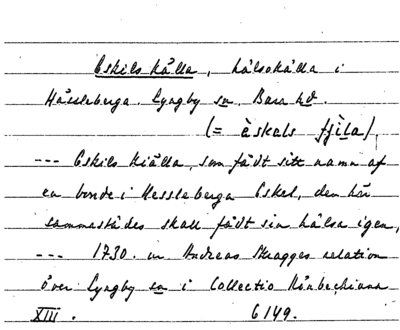 Eskils källa, hälsokälla i
Hässleberga. Lyngby sn. Bara hd.
(= èskals fjìla),
--- Eskils Kiälla, som fådt sitt namn af
en bonde i Hessleberga Eskel, den här
sammastädes skall fådt sin hälsa igen,
--- 1730. ur Andreas Stragges relation
över Lyngby sn i Collectio Rönbechiana
XIII. 6149.